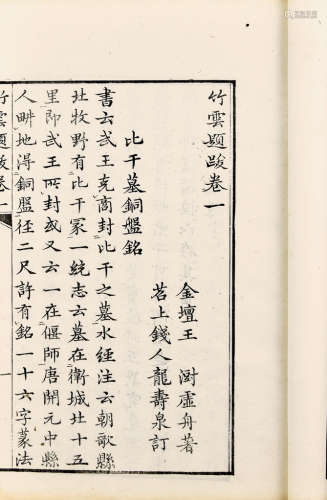 竹雲題跋卷一
金壇王 澍虛舟著
苕上錢人龍壽泉訂
比干墓銅盤銘
書云武王克商封比干之墓水經注云朝歌縣
北牧野有比干冢一統志云墓在衛城北十五
里即武王所封或又云一在偃師唐開元中縣
人畊地得銅盤徑二尺許有銘一十六字篆法
竹雲題跋卷一